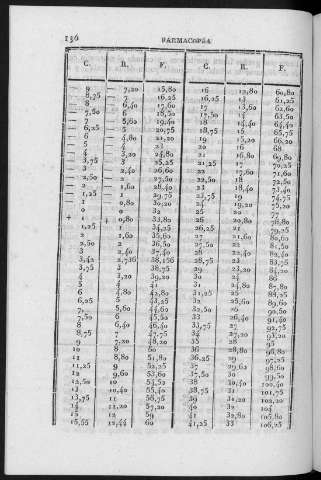 156 FARMACOPÉA
C. R. F. C. R. F.
— 9 — 7,20 15,80 16 12,80 60,80
— 8,75 — 7 16,25 16,25 13 61,25
— 8 — 6,40 17,60 17 13,60 62,60
— 7,50 — 6 18,50 17,50 14 63,50
— 7 — 5,60 19,40 18 14,40 64,40
— 6,25 — 5 20,75 18,75 15 65,75
— 6 — 4,80 21,20 19 15,20 66,20
— 5 — 4 23 20 16 68
— 4 — 3,20 24,80 21 16,80 69,80
— 3,75 — 3 25,25 21,25 17 70,25
— 3 — 2,40 26,60 22 17,60 71,60
— 2,50 — 2 27,50 22,50 18 72,50
— 2 — 1,60 28,40 23 18,40 73,40
— 1,25 — 1 29,75 23,75 19 74,75
— 1 — 0,80 30,20 24 19,20 75,20
0 0 32 25 20 77
+ 1 + 0,80 33,80 26 20,80 78,80
1,25 1 34,25 26,25 21 79,25
2 1,60 35,60 27 21,60 80,60
2,50 2 36,50 27,50 22 81,50
3 2,40 37,40 28 22,40 82,40
3,42 2,736 38,156 28,75 23 83,75
3,75 3 38,75 29 23,20 84,20
4 3,20 39,20 30 24 86
5 4 41 31 24,80 87,80
6 4,80 42,80 31,25 25 88,25
6,25 5 43,25 32 25,60 89,60
7 5,60 44,60 32,50 26 90,50
7,50 6 45,50 33 26,40 91,40
8 6,40 46,40 33,75 27 92,75
8,75 7 47,75 34 27,20 93,20
9 7,20 48,20 35 28 95
10 8 50 36 28,80 96,80
11 8,80 51,80 36,25 29 97,25
11,25 9 52,25 37 29,60 98,60
12 9,60 53,60 37,50 30 99,50
12,50 10 54,50 38 30,40 100,40
13 10,40 55,40 38,75 31 101,75
13,75 11 56,75 39 31,20 102,20
14 11,20 57,20 40 32 104
15 12 59 41 32,80 105,80
15,55 12,44 60 41,25 33 106,25